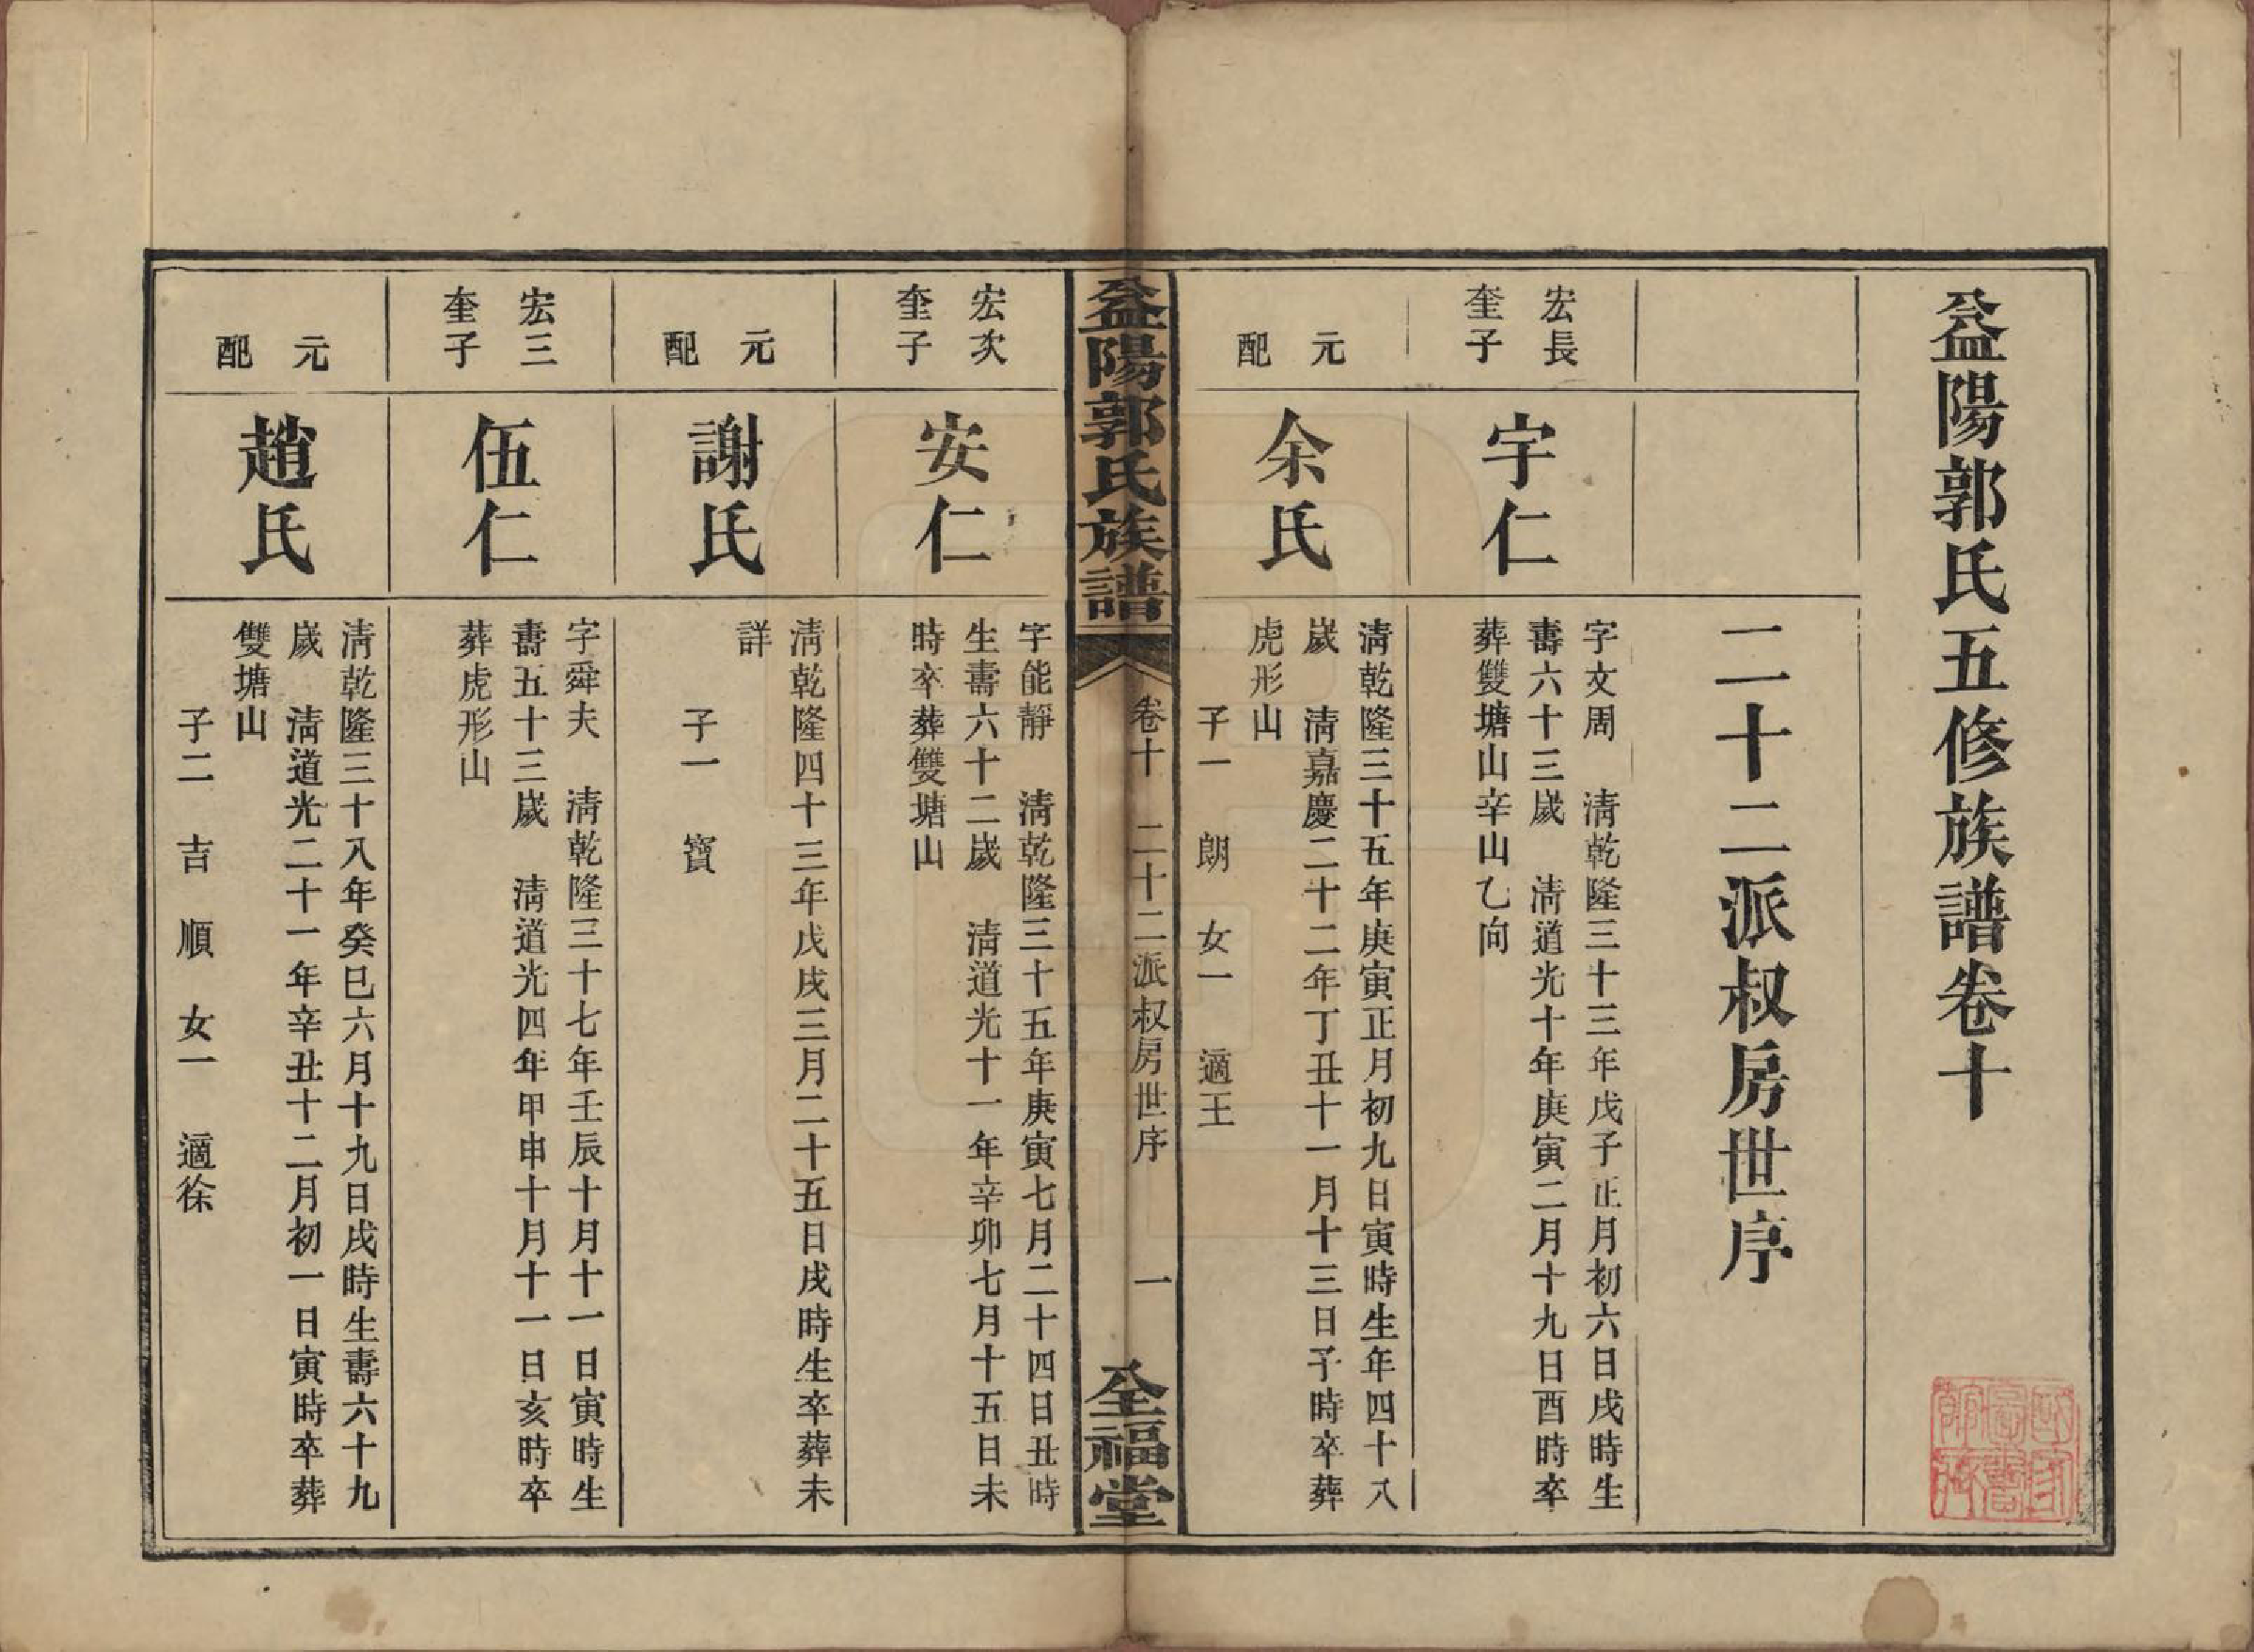 益陽郭氏五修族譜卷十
二十二派叔房世序
宏長
奎子
宇仁
字文周　清乾隆三十三年戊子正月初六日戌時生
壽六十三歲　清道光十年庚寅二月十九日酉時卒
葬雙塘山辛山乙向
元
配
余氏
清乾隆三十五年庚寅正月初九日寅時生年四十八
歲　清嘉慶二十二年丁丑十一月十三日子時卒葬
虎形山
子一　朗　女一　適王
益陽郭氏族譜
卷十　二十二派叔房世序　一
全福堂
宏次
奎子
安仁
字能靜　清乾隆三十五年庚寅七月二十四日丑時
生壽六十二歲　清道光十一年辛卯七月十五日未
時卒葬雙塘山
元
配
謝氏
清乾隆四十三年戊戌三月二十五日戌時生卒葬未
詳
子一　寶
宏三
奎子
伍仁
字舜夫　清乾隆三十七年壬辰十月十一日寅時生
壽五十三歲　清道光四年甲申十月十一日亥時卒
葬虎形山
元
配
趙氏
清乾隆三十八年癸巳六月十九日戌時生壽六十九
歲　清道光二十一年辛丑十二月初一日寅時卒葬
雙塘山
子二　吉　順　女一　適徐